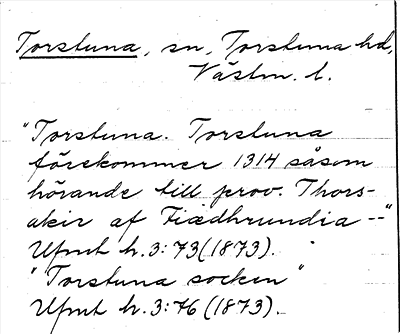 Torstuna, sn, Torstuna hd,
Västm. l.
"Torstuna. Torstuna
förekommer 1314 såsom
hörande till prov. Thors-
akir af Fiædhrundia --"
Ufmt h. 3: 73 (1873).
"Torstuna socken"
Ufmt h. 3: 76 (1873).